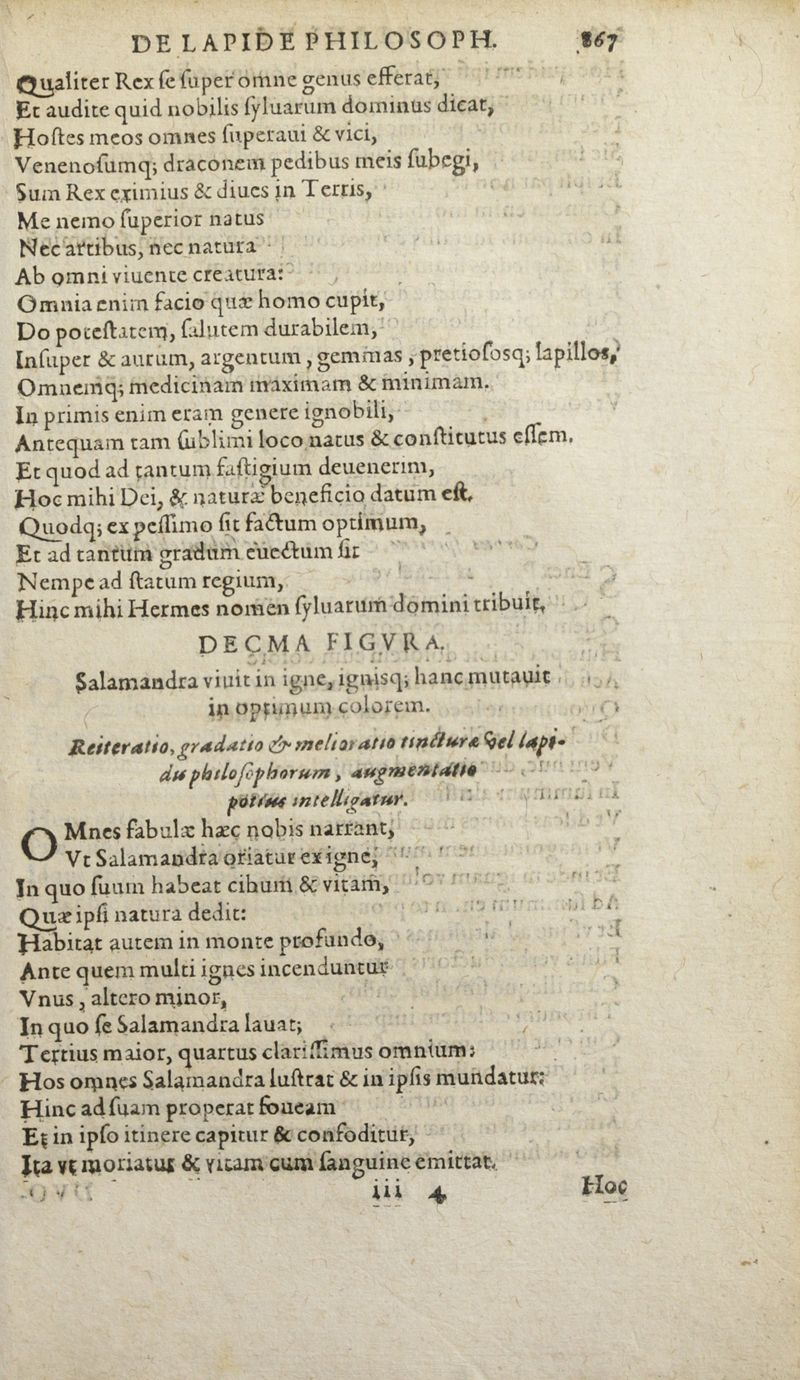 DE LAPIDE PHILOSOPH. 867
Qualiter Rex ſe ſuper omne genus efferat,
Et audite quid nobilis ſyluarum dominus dicat,
Hoſtes meos omnes ſuperaui & vici,
Venenoſumq; draconem pedibus meis ſubegi,
Sum Rex eximius & diues in Terris,
Me nemo ſuperior natus
Nec artibus, nec natura
Ab omni viuente creatura:
Omnia enim facio quæ homo cupit,
Do poteſtatem, ſalutem durabilem,
Inſuper & aurum, argentum, gemmas, pretioſosq; lapillos,
Omnemq; medicinam maximam & minimam.
In primis enim eram genere ignobili,
Antequam tam ſublimi loco natus & conſtitutus eſſem.
Et quod ad tantum faſtigium deuenerim,
Hoc mihi Dei, & naturæ beneficio datum eſt.
Quodq; ex peſſimo ſit factum optimum,
Et ad tantum gradum euectum ſit
Nempe ad ſtatum regium,
Hinc mihi Hermes nomen ſyluarum domini tribuit.
DECMA FIGVRA.
Salamandra viuit in igne, ignisq; hanc mutauit
in optimum colorem.
Reiteratio, gradatio & melioratio tincturæ vel lapi-
dis philoſophorum, augmentatio
potius intelligatur.
OMnes fabulæ hæc nobis narrant,
Vt Salamandra oriatur ex igne,
In quo ſuum habeat cibum & vitam,
Quæ ipſi natura dedit:
Habitat autem in monte profundo,
Ante quem multi ignes incenduntur
Vnus, altero minor,
In quo ſe Salamandra lauat;
Tertius maior, quartus clariſſimus omnium:
Hos omnes Salamandra luſtrat & in ipſis mundatur:
Hinc ad ſuam properat foueam
Et in ipſo itinere capitur & confoditur,
Ita vt moriatur & vitam cum ſanguine emittat.
iii 4 Hoc